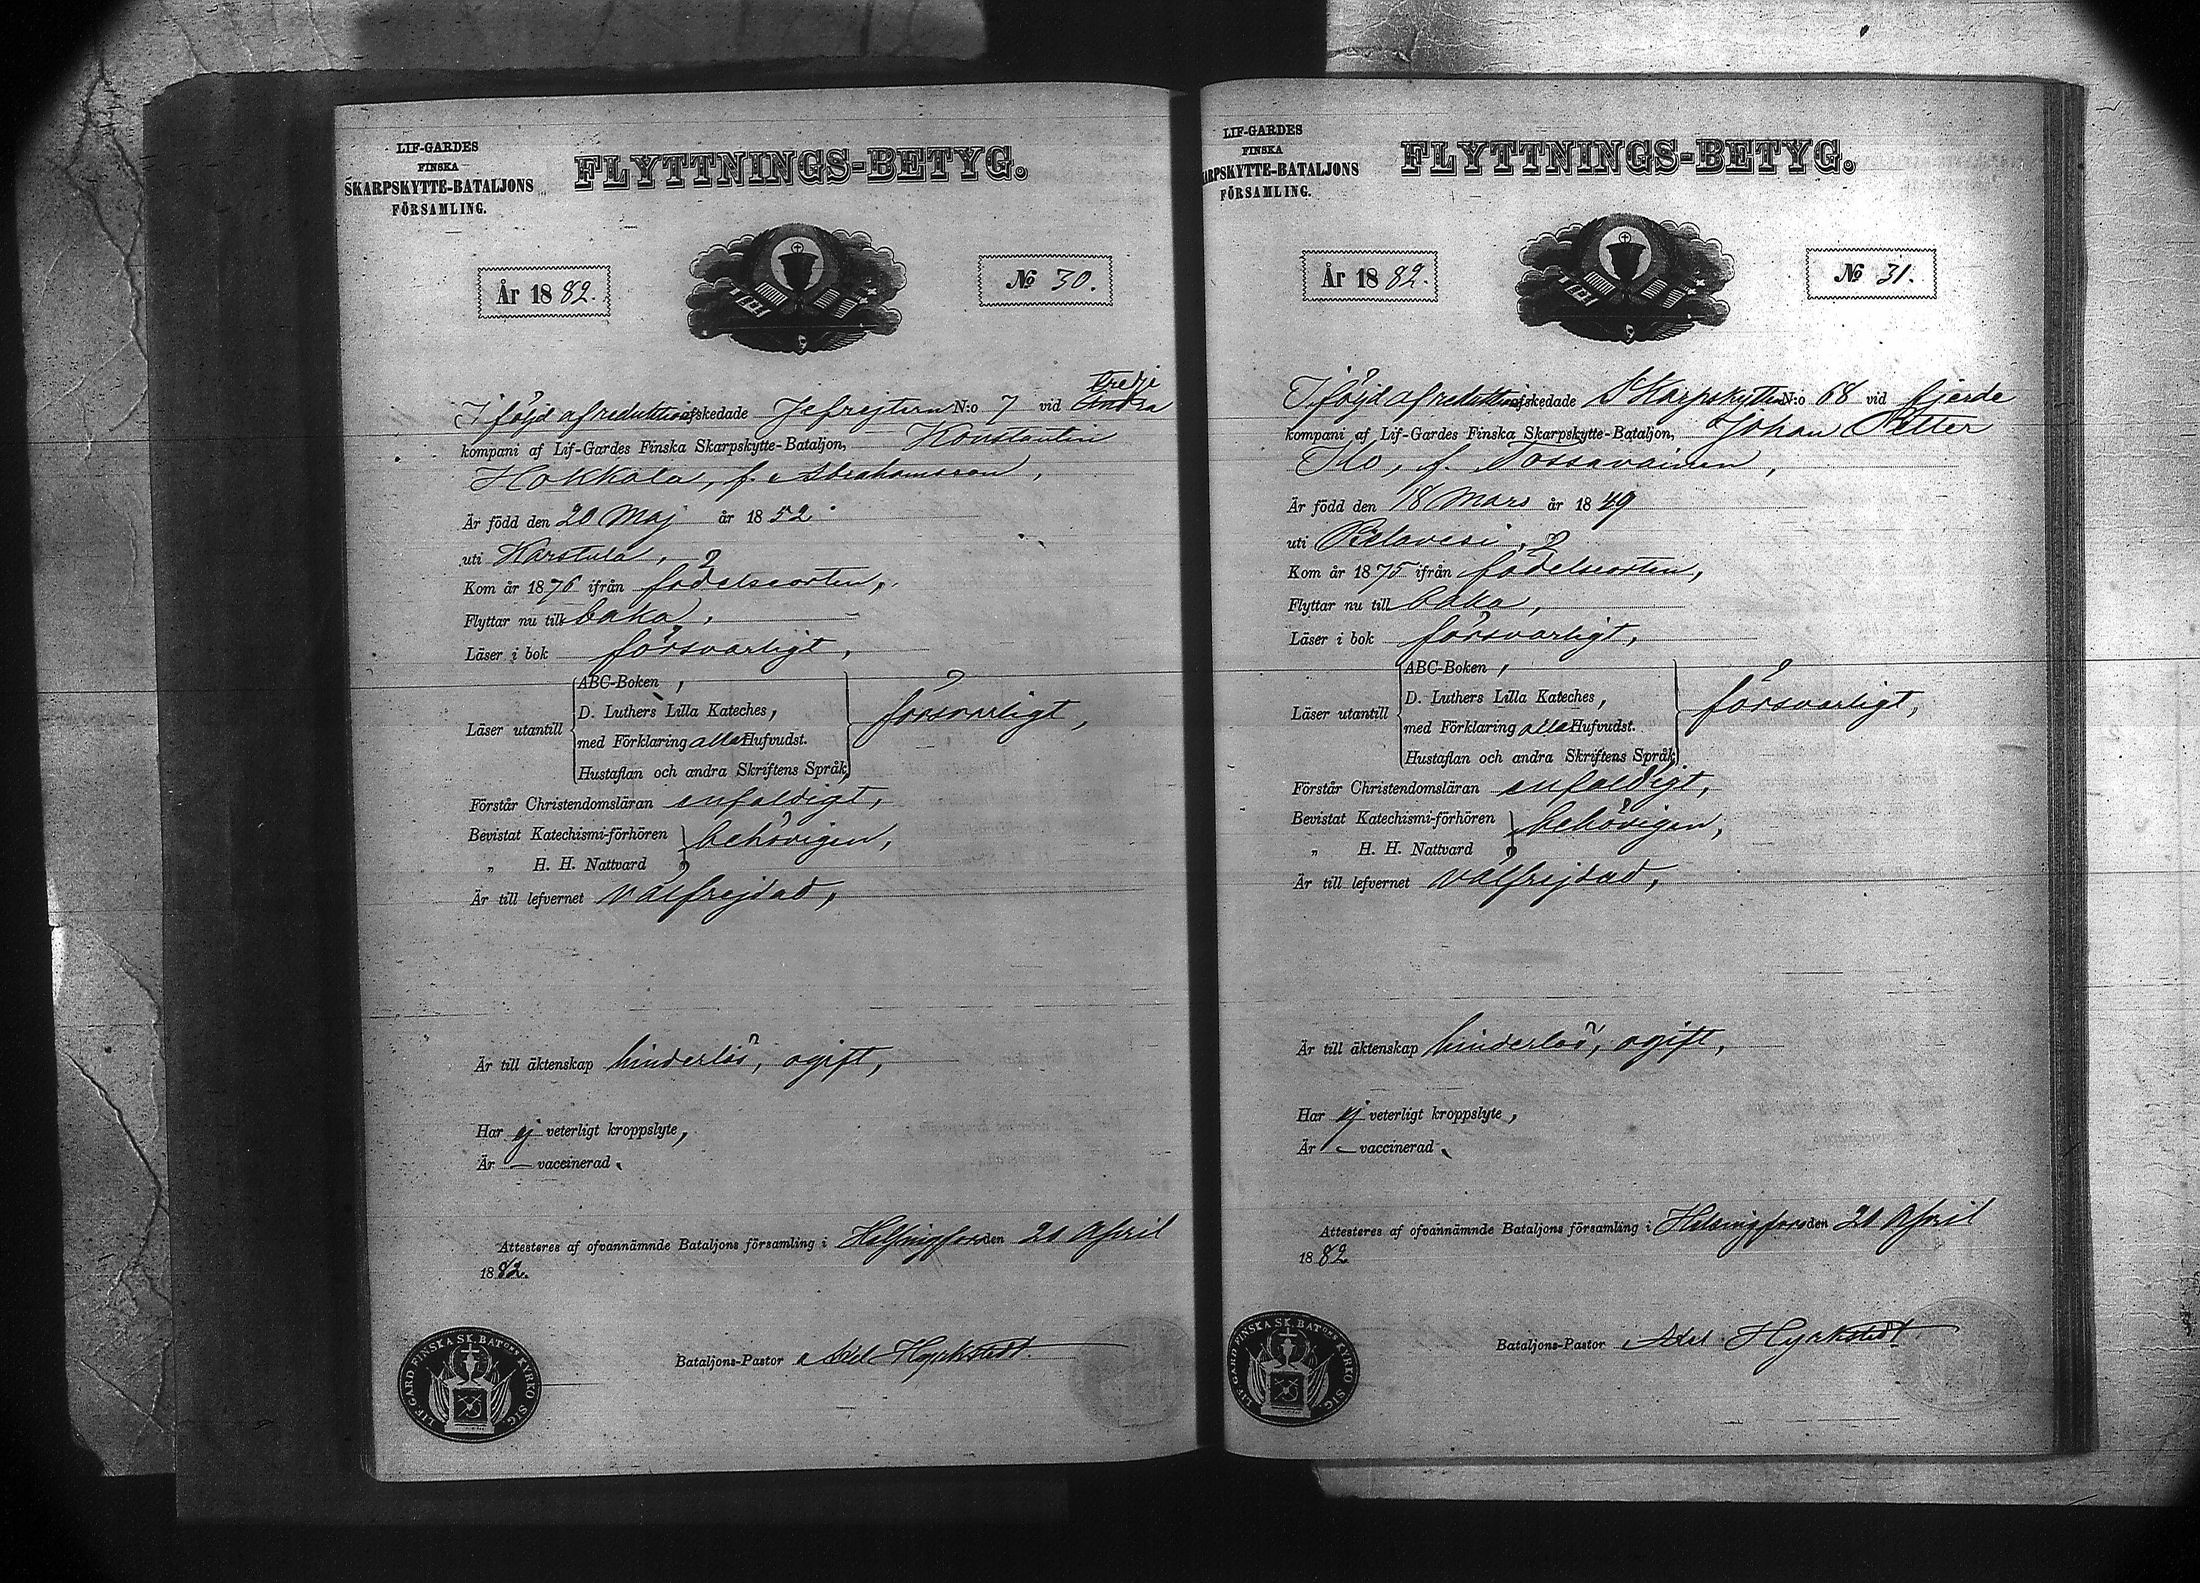 LIF-GARDES
FINSKA
SKARPSKYTTE-BATALJONS
FÖRSAMLING.
FLYTTNINGS-BETYG.
År 1882.
№ 30.
Tredje
I följd af reduktion afskedade Gefrejtern N:o 7 vid Andra
kompani af Lif-Gardes Finska Skarpskytte-Bataljon, Konstantin
Hokkala, f. Abrahamsson,
Är född den 20 Maj år 1852.
uti Karstula,
Kom år 1876 ifrån födelseorten,
Flyttar nu till baka,
Läser i bok försvarligt,
ABC-Boken,
D. Luthers Lilla Kateches,
Läser utantill
med Förklaring alla Hufvudst.
försvarligt,
Hustaflan och andra Skriftens Språk,
Förstår Christendomsläran enfaldigt,
Bevistat Katechismi-förhören
behörigen,
„ H. H. Nattvard
Är till lefvernet välfrejdad,
Är till äktenskap hinderlös, ogift,
Har ej veterligt kroppslyte,
Är — vaccinerad.
Attesteres af ofvannämnde Bataljons församling i Helsingfors den 21 April
1882.
LIF GARD FINSKA SK. BATONS KYRKO SIG.
Bataljons-Pastor Axel Hyrkstedt.
LIF-GARDES
FINSKA
ARPSKYTTE-BATALJONS
FÖRSAMLING.
FLYTTNINGS-BETYG.
År 1882.
№ 31.
I följd af reduktion afskedade Skarpskytten N:o 68 vid fjerde
kompani af Lif-Gardes Finska Skarpskytte-Bataljon, Johan Petter
Ilo, f. Tossavainen,
Är född den 18 Mars år 1849
uti Pielavesi,
Kom år 1875 ifrån födelseorten,
Flyttar nu till baka,
Läser i bok försvarligt,
ABC-Boken,
D. Luthers Lilla Kateches,
Läser utantill
med Förklaring alla Hufvudst.
försvarligt,
Hustaflan och andra Skriftens Språk
Förstår Christendomsläran enfaldigt,
Bevistat Katechismi-förhören
behörigen,
„ H. H. Nattvard
Är till lefvernet välfrejdad,
Är till äktenskap hinderlös, ogift,
Har ej veterligt kroppslyte,
Är — vaccinerad.
Attesteres af ofvannämnde Bataljons församling i Helsingfors den 21 April
1882
LIF GARD FINSKA SK. BATONS KYRKO SIG.
Bataljons-Pastor Axel Hyrkstedt.